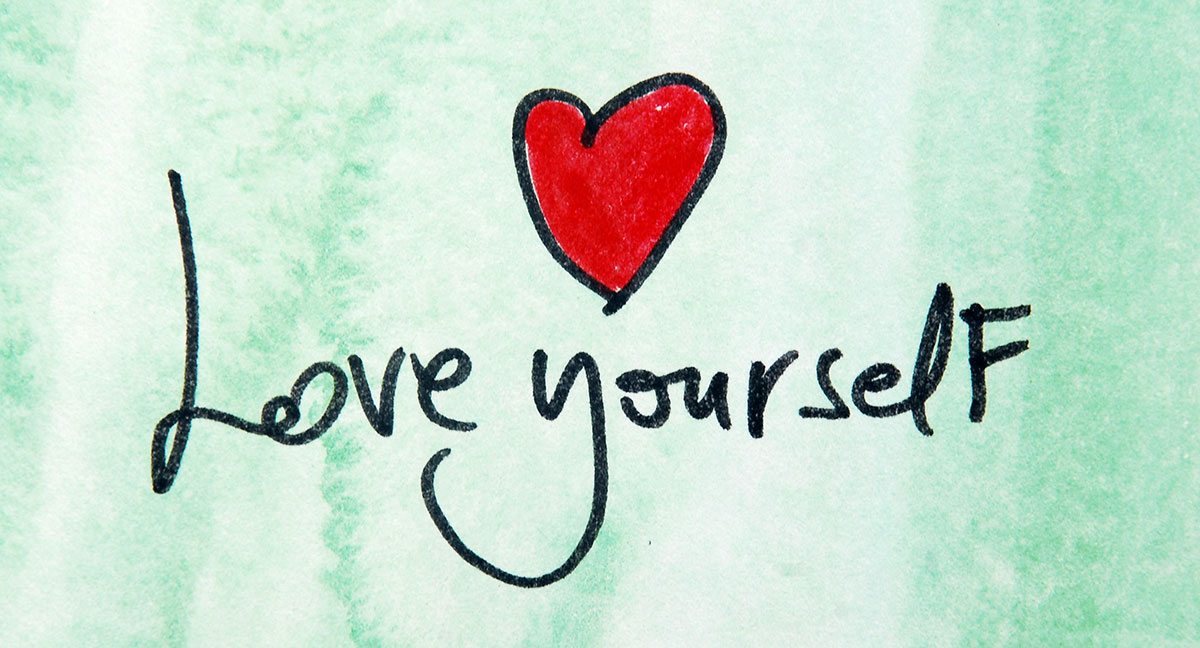 Love yourself